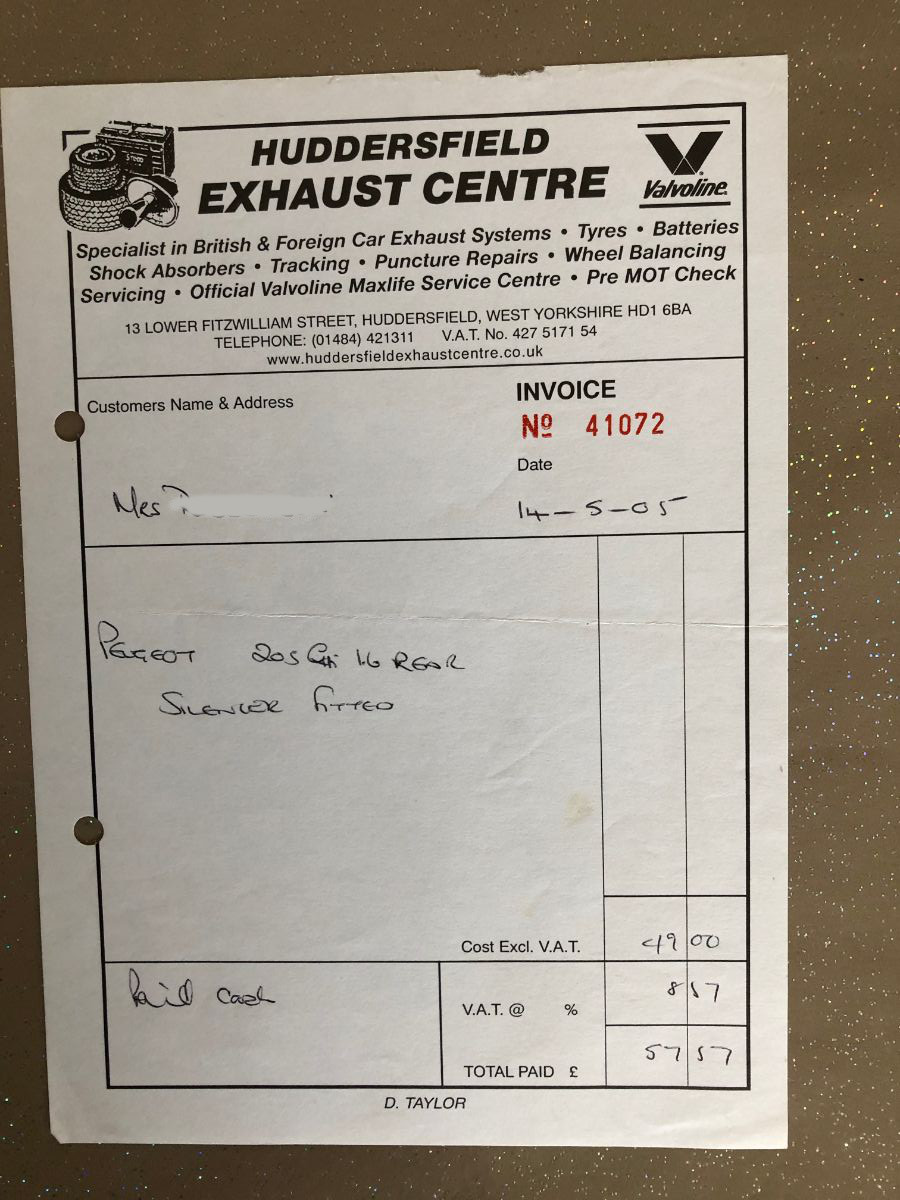 HUDDERSFIELD
EXHAUST CENTRE
Valvoline
Specialist in British & Foreign Car Exhaust Systems • Tyres • Batteries
Shock Absorbers • Tracking • Puncture Repairs • Wheel Balancing
Servicing • Official Valvoline Maxlife Service Centre • Pre MOT Check
13 LOWER FITZWILLIAM STREET, HUDDERSFIELD, WEST YORKSHIRE HD1 6BA
TELEPHONE: (01484) 421311 V.A.T. No. 427 5171 54
www.huddersfieldexhaustcentre.co.uk
Customers Name & Address
INVOICE
Nº 41072
Date
Mrs
14-5-05
PEUGEOT 205 GTi 1.6 REAR
SILENCER FITTED
Cost Excl. V.A.T. 49 00
Paid Cash
V.A.T. @ % 8 57
TOTAL PAID £ 57 57
D. TAYLOR